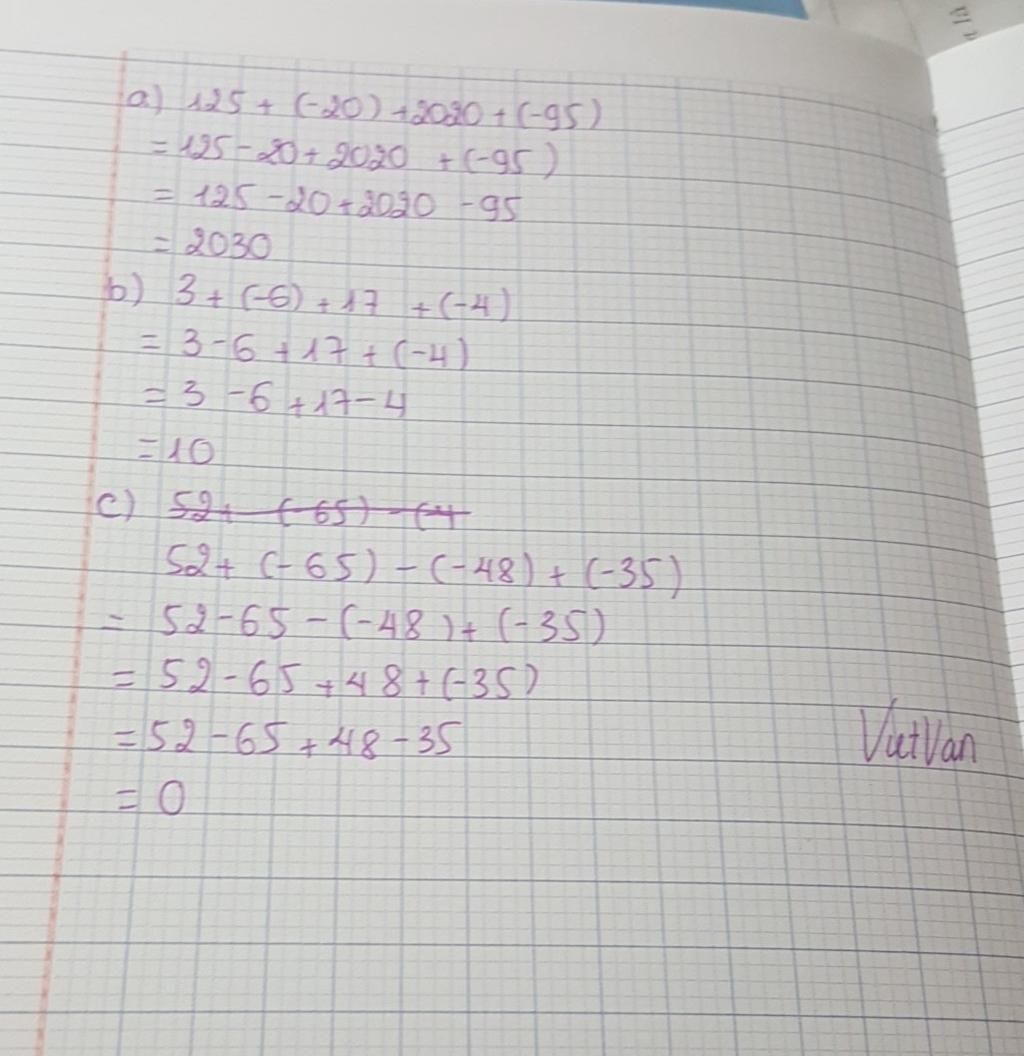 a) 125 + (-20) + 2020 + (-95)
= 125 - 20 + 2020 + (-95)
= 125 - 20 + 2020 - 95
= 2030
b) 3 + (-6) + 17 + (-4)
= 3 - 6 + 17 + (-4)
= 3 - 6 + 17 - 4
= 10
c) 52 + (-65) - (-4
52 + (-65) - (-48) + (-35)
= 52 - 65 - (-48) + (-35)
= 52 - 65 + 48 + (-35)
= 52 - 65 + 48 - 35
VietVan
= 0